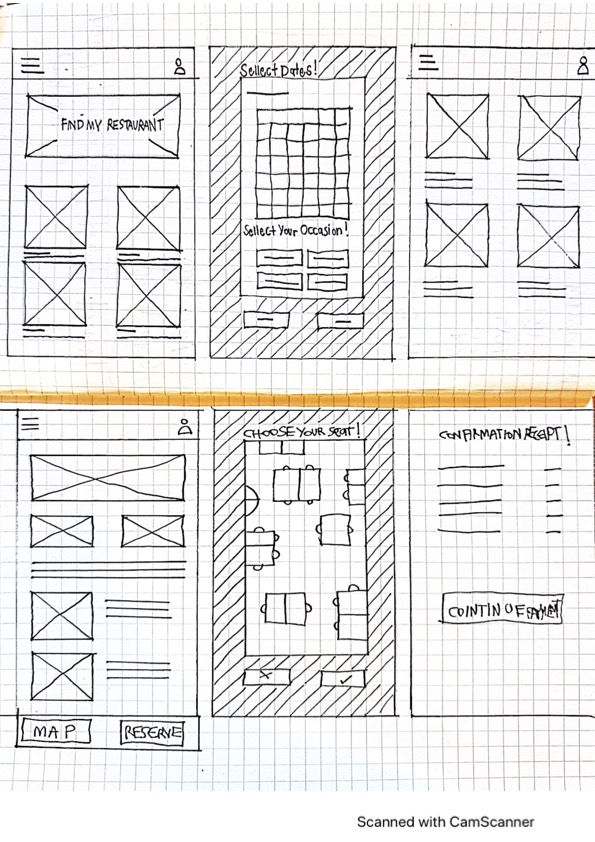 FIND MY RESTAURANT
Sellect Dates!
Sellect Your Occasion!
CHOOSE YOUR SEAT!
CONFIRMATION RECEIPT!
MAP
RESERVE
Scanned with CamScanner